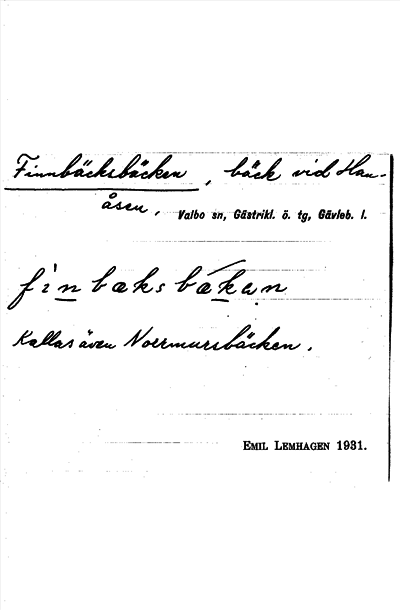 Finnbäcksbäcken, bäck vid Han-
åsen, Valbo sn, Gästrikl. ö. tg, Gävleb. l.
fìnbæksbǽkan
Kallas även Norrmursbäcken.
EMIL LEMHAGEN 1931.